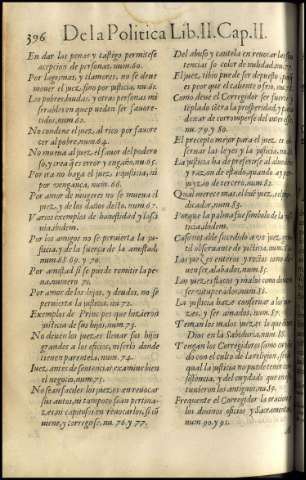 396 De la Politica Lib. II. Cap. II.
En dar las penas y castigo permitese
acepcion de personas. num. 60.
Por lagrimas, y clamores, no se deue
mouer el juez, sino por justicia, nu. 61.
Los pobres, biudas, y otras personas mi
serables en que pueden ser fauore-
cidos, num. 62.
No condene el juez, al rico por fauore
cer al pobre, num. 64.
No mueua al juez el fauor del podero
so, y crea que es error y engaño, nu. 65.
Por ira no haga el juez injusticia, ni
por vengança, num. 66.
Por amor de mugeres no se mueua el
juez, y de los daños desto. num. 67.
Varios exemplos de honestidad y lasci
uia, ibidem.
Por los amigos no se peruierta la ju-
sticia, y de la fuerça de la amistad,
num. 68. 69. y 70.
Por amistad si se puede remitir la pe-
na, numero 70.
Por amor de los hijos, y deudos, no se
peruierta la justicia, nu. 72.
Exemplos de Principes que hizieron
justicia de sus hijos, num. 73.
No dexen los juezes lleuar sus hijos
grandes a los oficios, ni serlo donde
tienen parentela, num. 74.
Juez, antes de sentenciar examine bien
el negocio, num. 75.
No sean faciles los juezes en reuocar
sus autos, ni tampoco sean pertina-
zes en
num. 76. y 77.
Del abuso y cautela en reuocar las sen
tencias so color de nulidad, nu. 77.
El juez, tibio puede ser depuesto
es peor que el caliente o frio, nu. 78.
Como deue el Corregidor ser fuerte y
templado
nu. 79. y 80.
El precepto mejor para el juez, es
las leyes y la justicia, nu. 81.
La justicia ha de preferirse al
y razon de estado, quando
juyzio de tercero, num. 82.
Qual merece mas, el juez, o el
dicador, num. 83.
Porque la palma fue simbolo de la ju-
sticia, ibidem.
observante de justicia, num. 84.
Los juezes enteros y rectos como de-
uen ser alabados, num. 85.
Los juezes
num. 86.
La justicia haze conseruar a los
y ser amados, num. 87.
Teman los malos juezes lo que
Dios en la Sabiduria, num. 88.
Tengan los Corregidores
do con el culto de la religion, sin
qual la justicia no puede tener con-
sistencia, y del cuydado que en
tuuieron los antiguos, nu. 89.
Frequente el Corregidor la oracion
los diuinos oficios y Sacramentos,
num. 90. y 91.